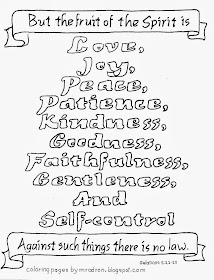 But the fruit of the Spirit is
Love,
Joy,
Peace,
Patience,
Kindness,
Goodness,
Faithfulness,
Gentleness,
And
Self-control
Galatians 5:22-23
Against such things there is no law.
coloring pages by mradron.blogspot.com